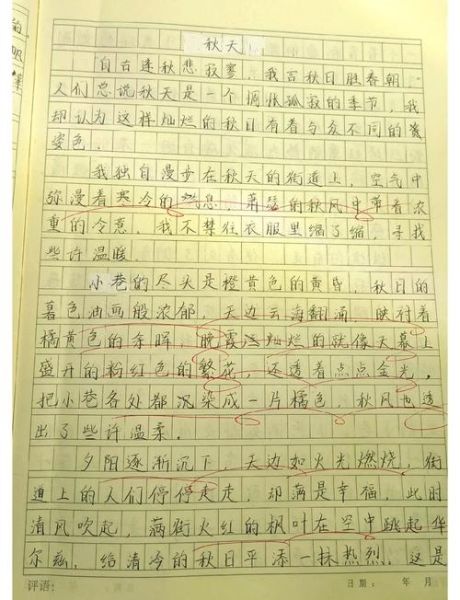 秋天
自古逢秋悲寂寥,我言秋日胜春朝。
人们总说秋天是一个惆怅孤寂的季节,我
却认为这样灿烂的秋日有着与众不同的资
姿色。
我独自漫步在秋天的街道上,空气中
弥漫着寒冷的气息,萧瑟的秋风中带着浓
重的冷意,我不禁往衣服里缩了缩,寻找
些许温暖。
小巷的尽头是橙黄色的黄昏,秋日的
暮色油画般浓郁,天边云海翻涌,映衬着
橘黄色的余晖,晚霞灿烂的就像天幕上
盛开的粉红色的繁花,还透着点点金光,
把小巷各处都沉染成一片橘色,秋风也透
出了些许温柔。
夕阳逐渐沉下,天边如火光燃烧,街
道上的人们停停走走,却满是幸福,此时
清风吹起,满街火红的枫叶在空中跳起华
尔兹,给清冷的秋日平添一抹热烈。这是
评语:
日期: 年 月